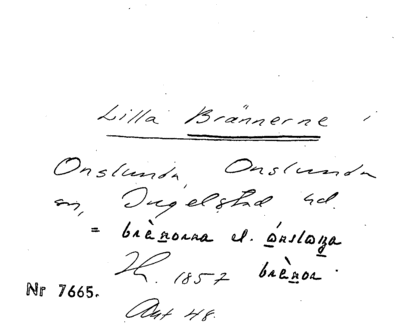 Lilla Brännerne i
Onslunda, Onslunda
sn, Ingelstad hd.
= brènorna el. ónslonda
H. 1857 brènor.
Nr 7665.
Ant 48.